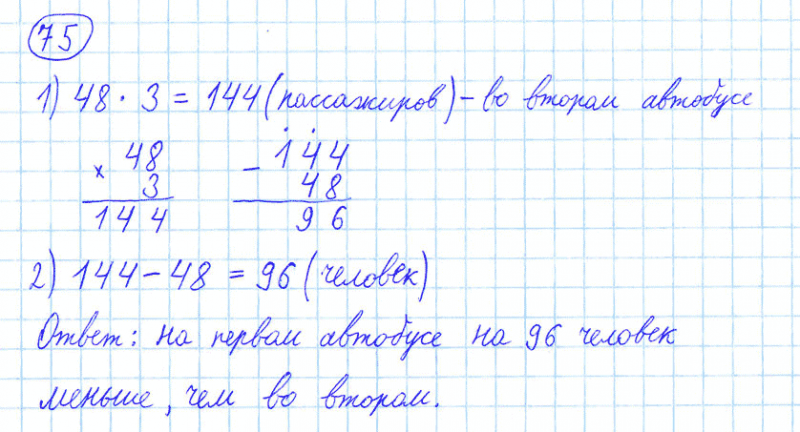 75
1) 48 · 3 = 144 (пассажиров) – во втором автобусе
× 48
3
144
– 144
48
96
2) 144 – 48 = 96 (человек)
Ответ: на первом автобусе на 96 человек
меньше, чем во втором.